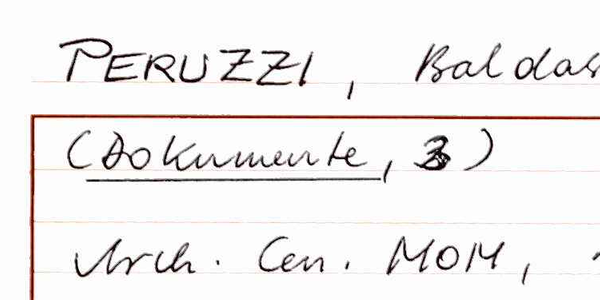 PERUZZI, Baldas
(Dokumente, 3)
Arch. Cen. MOM,